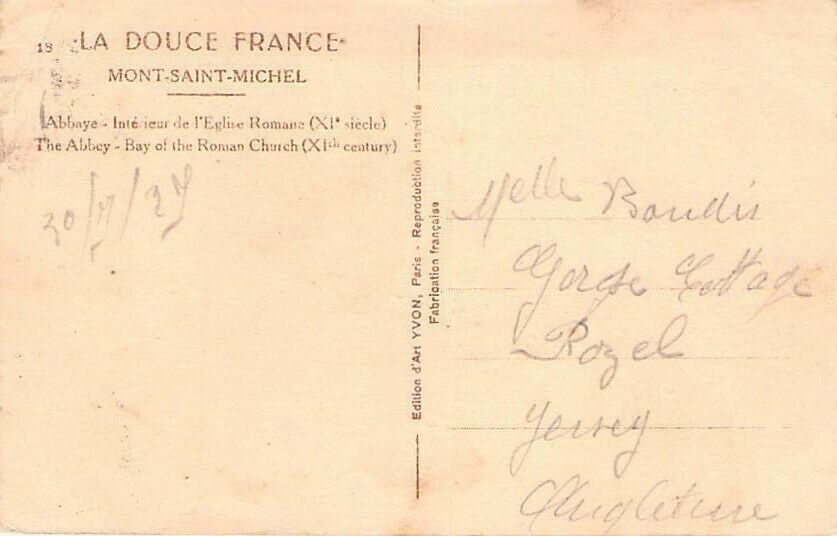 18 LA DOUCE FRANCE
MONT-SAINT-MICHEL
Abbaye - Intérieur de l'Eglise Romane (XIe siècle)
The Abbey - Bay of the Roman Church (XIth century)
30/7/27
Edition d'Art YVON, Paris - Reproduction interdite
Fabrication française
Melle Boudis
Gorge Cottage
Rozel
Jersey
Angleterre